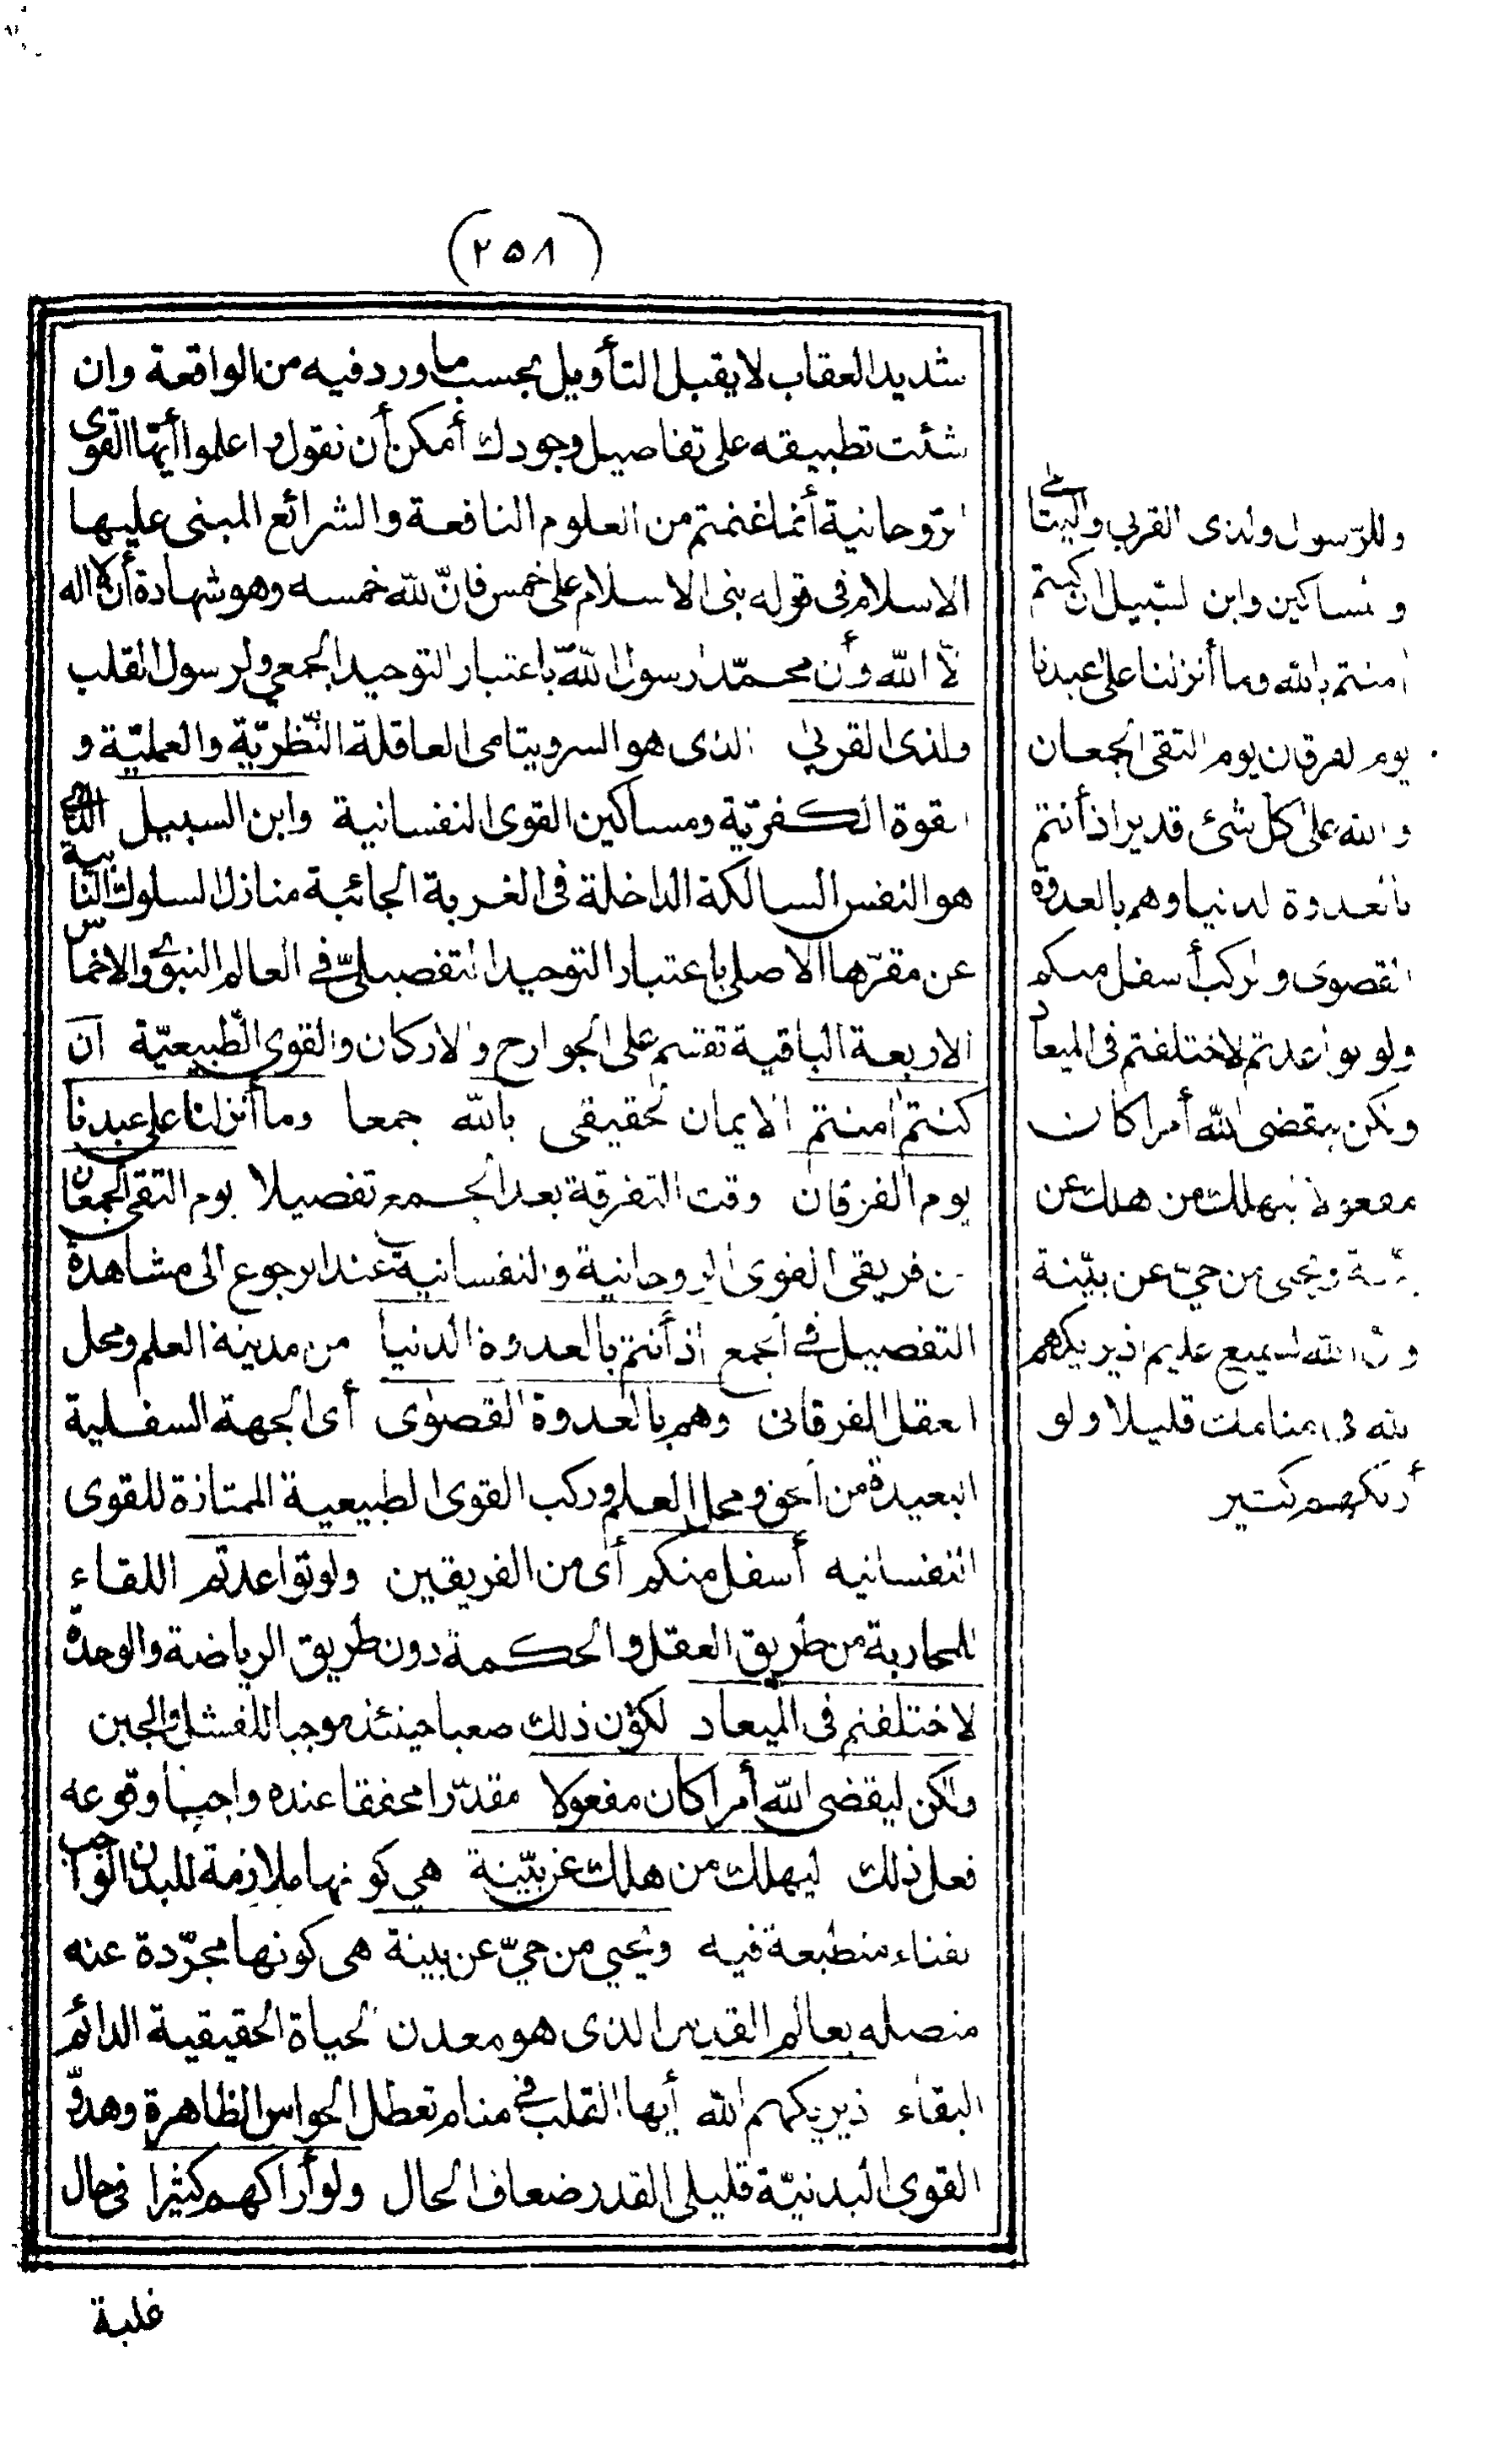 (٢٥٨)
شديد العقاب لا يقبل التأويل بحسب ما ورد فيه من الواقعة وان
شئت تطبيقه على تفاصيل وجودك أمكن أن نقول واعلموا أيها القوى
الروحانية أنما غنمتم من العلوم النافعة والشرائع المبنى عليها
الاسلام فى قوله بنى الاسلام على خمس فانّ لله خمسه وهو شهادة أن لا اله
الّا الله وأن محمّدا رسول الله باعتبار التوحيد الجمعي ولرسول القلب
ولذى القربى الذى هو السر ويتامى العاقلة النّظريّة والعمليّة و
القوة الفكريّة ومساكين القوى النفسانية وابن السبيل الذى
هو النفس السالكة الداخلة فى الغربة الجائبة منازل السلوك النائية
عن مقرّها الاصلى باعتبار التوحيد التفصيلىّ فى العالم النبوى والاخماس
الاربعة الباقية تقسم على الجوارح والاركان والقوى الطّبيعيّة ان
كنتم امنتم الايمان الحقيقى بالله جمعا وما أنزلنا على عبدنا
يوم الفرقان وقت التفرقة بعد الجمع تفصيلا يوم التقى الجمعان
من فريقى القوى الروحانية والنفسانية عند الرجوع الى مشاهدة
التفصيل فى الجمع اذ أنتم بالعدوة الدنيا من مدينة العلم ومحل
العقل الفرقانى وهم بالعدوة القصوى أى الجهة السفلية
البعيدة من الحق ومحل العلم وركب القوى الطبيعية الممتازة للقوى
النفسانيه أسفل منكم أى من الفريقين ولو تواعدتم اللقاء
للمحاربة من طريق العقل والحكمة دون طريق الرياضة والوحدة
لاختلفتم فى الميعاد لكون ذلك صعبا حينئذ موجبا للفشل والجبن
ولكن ليقضى الله أمرا كان مفعولا مقدّرا محققا عنده واجبا وقوعه
فعل ذلك ليهلك من هلك عن بيّنة هي كونها ملازمة للبدن الواجب
لفناء منطبعة فيه ويحيي من حيّ عن بينة هى كونها مجرّدة عنه
متصله بعالم القدس الذى هو معدن الحياة الحقيقية الدائم
البقاء اذ يريكهم الله أيها القلب فى منام تعطل الحواس الظاهرة وهدوّ
القوى البدنيّة قليلى القدر ضعاف الحال ولو أراكهم كثيرا فى حال
غلبة
وللرّسول ولذى القربى واليتامى
والمساكين وابن السبيل ان كنتم
امنتم بالله وما أنزلنا على عبدنا
يوم الفرقان يوم التقى الجمعان
والله على كل شئ قدير اذ أنتم
بالعدوة الدنيا وهم بالعدوة
القصوى والركب أسفل منكم
ولو تواعدتم لاختلفتم فى الميعاد
ولكن ليقضى الله أمرا كان
مفعولا ليهلك من هلك عن
بيّنة ويحيى من حيّ عن بيّنة
وان الله لسميع عليم اذ يريكهم
الله فى منامك قليلا ولو
أريكهم كثير